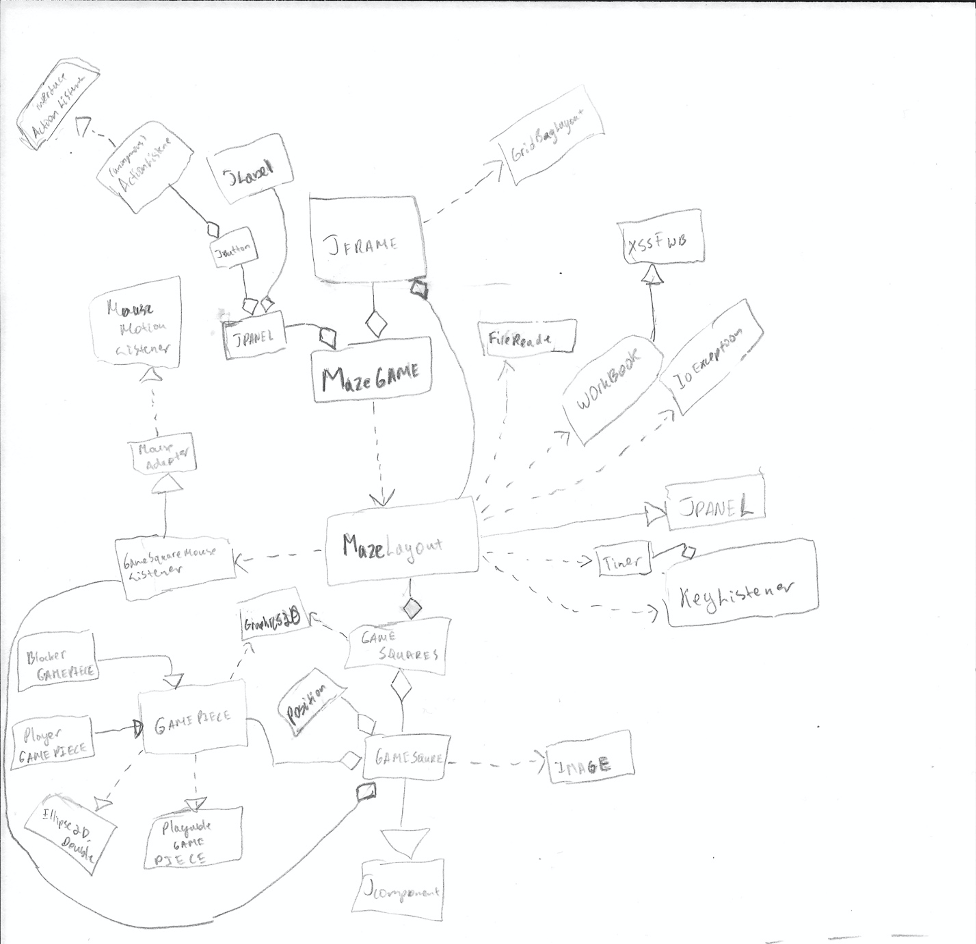 interface
Action Listene
(anonymous)
ActionListene
JLabel
GridBagLayout
JFRAME
JButton
XSSFWB
Mouse
Motion
Listener
JPANEL
FileReade
WORKBOOK
IoException
MazeGAME
Mouse
Adapter
JPANEL
MazeLayout
GameSquareMouse
Listener
Timer
KeyListener
Graphics2D
GAME
SQUARES
Blocker
GAMEPIECE
Position
GAMEPIECE
Player
GAMEPIECE
GAMESQURE
IMAGE
Ellipse2D.
Double
Playable
GAME
PIECE
Jcomponent